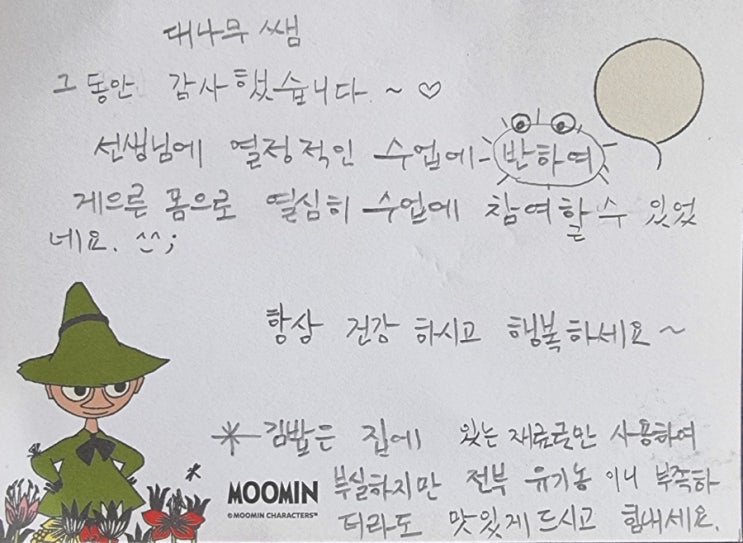 대나무 쌤
그동안 감사했습니다 ~ ♡
선생님에 열정적인 수업에 반하여
게으른 몸으로 열심히 수업에 참여할 수 있었
네요. ^^;
항상 건강 하시고 행복하세요 ~
* 김밥은 집에 있는 재료만 사용하여
부실하지만 전부 유기농 이니 부족하
더라도 맛있게 드시고 힘내세요.
MOOMIN
© MOOMIN CHARACTERS™